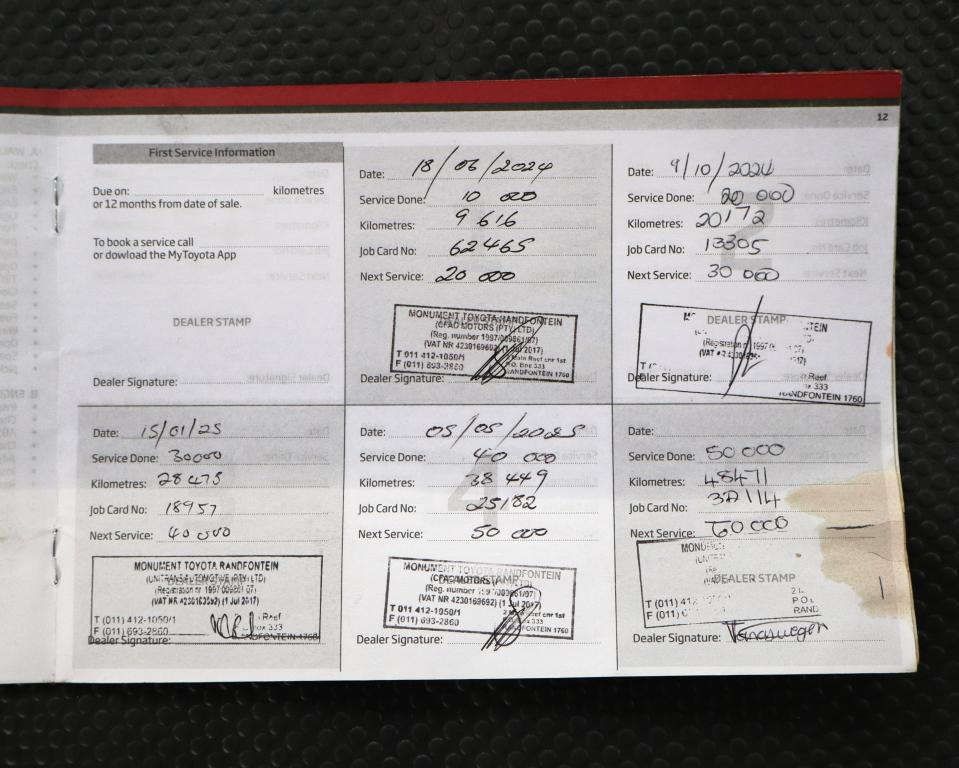 12
First Service Information
Due on: kilometres
or 12 months from date of sale.
To book a service call
or dowload the MyToyota App
DEALER STAMP
Dealer Signature:
Date: 18/06/2024
Service Done: 10 000
Kilometres: 9 616
Job Card No: 62465
Next Service: 20 000
MONUMENT TOYOTA RANDFONTEIN
(CFAO MOTORS (PTY) LTD)
(Reg. number 1997/009861/07)
(VAT NR 4230169692) (1 Jul 2017)
T 011 412-1050/1 Main Reef cnr 1st
F (011) 693-2860 P.O. Box 333
RANDFONTEIN 1760
Dealer Signature:
Date: 9/10/2024
Service Done: 20 000
Kilometres: 20172
Job Card No: 13305
Next Service: 30 000
DEALER STAMP
Reef
333
RANDFONTEIN 1760
Dealer Signature:
Date: 15/01/25
Service Done: 30000
Kilometres: 28475
Job Card No: 18957
Next Service: 40 000
MONUMENT TOYOTA RANDFONTEIN
(1 Jul 2017)
T (011) 412-1050/1 Reef
F (011) 693-2860 Box 333
RANDFONTEIN 1760
Dealer Signature:
Date: 05/05/2025
Service Done: 40 000
Kilometres: 38 449
Job Card No: 25182
Next Service: 50 000
4
MONUMENT TOYOTA RANDFONTEIN
(CFAO MOTORS (PTY) LTD)
(Reg. number 1997/009861/07)
(VAT NR 4230169692) (1 Jul 2017)
T 011 412-1050/1 Reef cnr 1st
F (011) 693-2860 333
RANDFONTEIN 1760
Dealer Signature:
Date:
Service Done: 50 000
Kilometres: 48471
Job Card No:
Next Service: 60 000
DEALER STAMP
T (011) 412
F (011)
RAND
Dealer Signature: